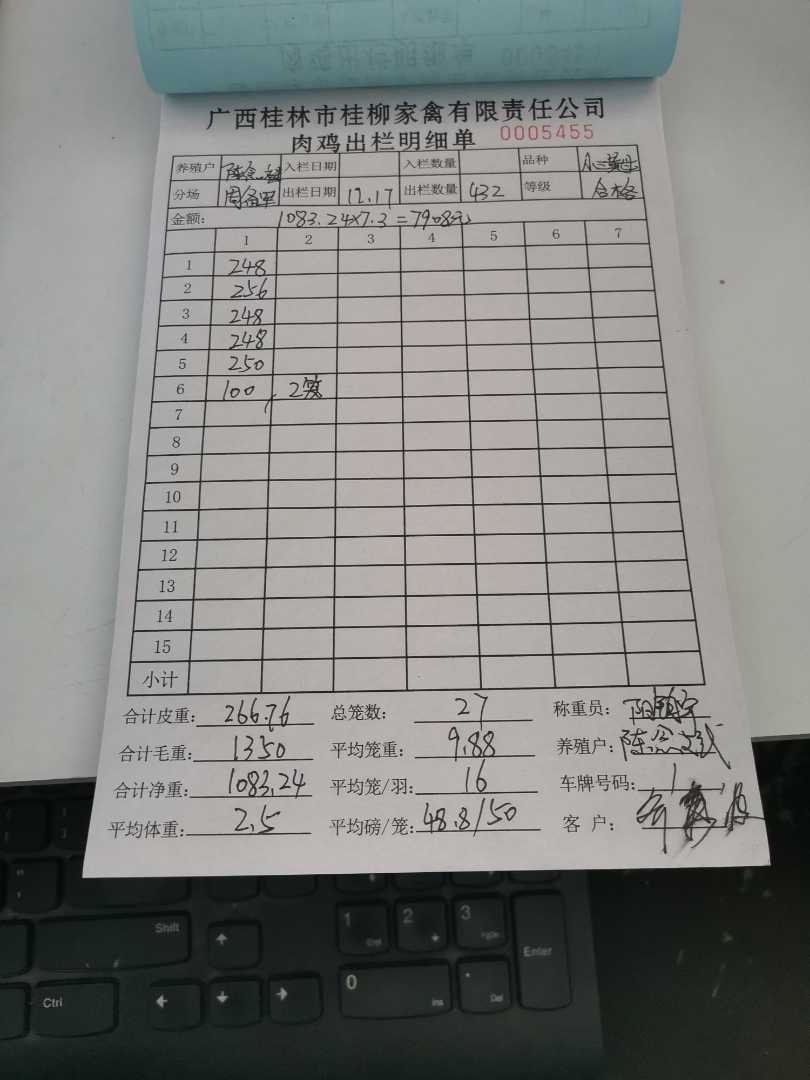 广西桂林市桂柳家禽有限责任公司
肉鸡出栏明细单 0005455
养殖户 入栏日期 入栏数量 品种
分场 出栏日期 12.17 出栏数量 432 等级 合格
金额: 1083.24×7.3=7908元
1 2 3 4 5 6 7
1 248
2 256
3 248
4 248
5 250
6 100 2笼
7
8
9
10
11
12
13
14
15
小计
合计皮重: 266.76 总笼数: 27 称重员:
合计毛重: 1350 平均笼重: 9.88 养殖户:
合计净重: 1083.24 平均笼/羽: 16 车牌号码: 1
平均体重: 2.5 平均磅/笼: 48.8/50 客 户:
Shift
1 End
2
3 PgDn
Enter
Ctrl
0 Ins
. Del